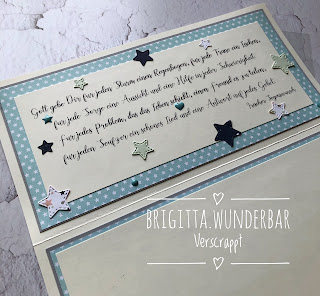 Gott gebe Dir für jeden Sturm einen Regenbogen, für jede Träne ein Lachen,
für jede Sorge eine Aussicht und eine Hilfe in jeder Schwierigkeit.
Für jedes Problem, das das Leben schickt, einen Freund es zu teilen,
für jeden Seufzer ein schönes Lied und eine Antwort auf jedes Gebet.
Irischer Segenswunsch
BRIGITTA.WUNDERBAR
Verscrappt